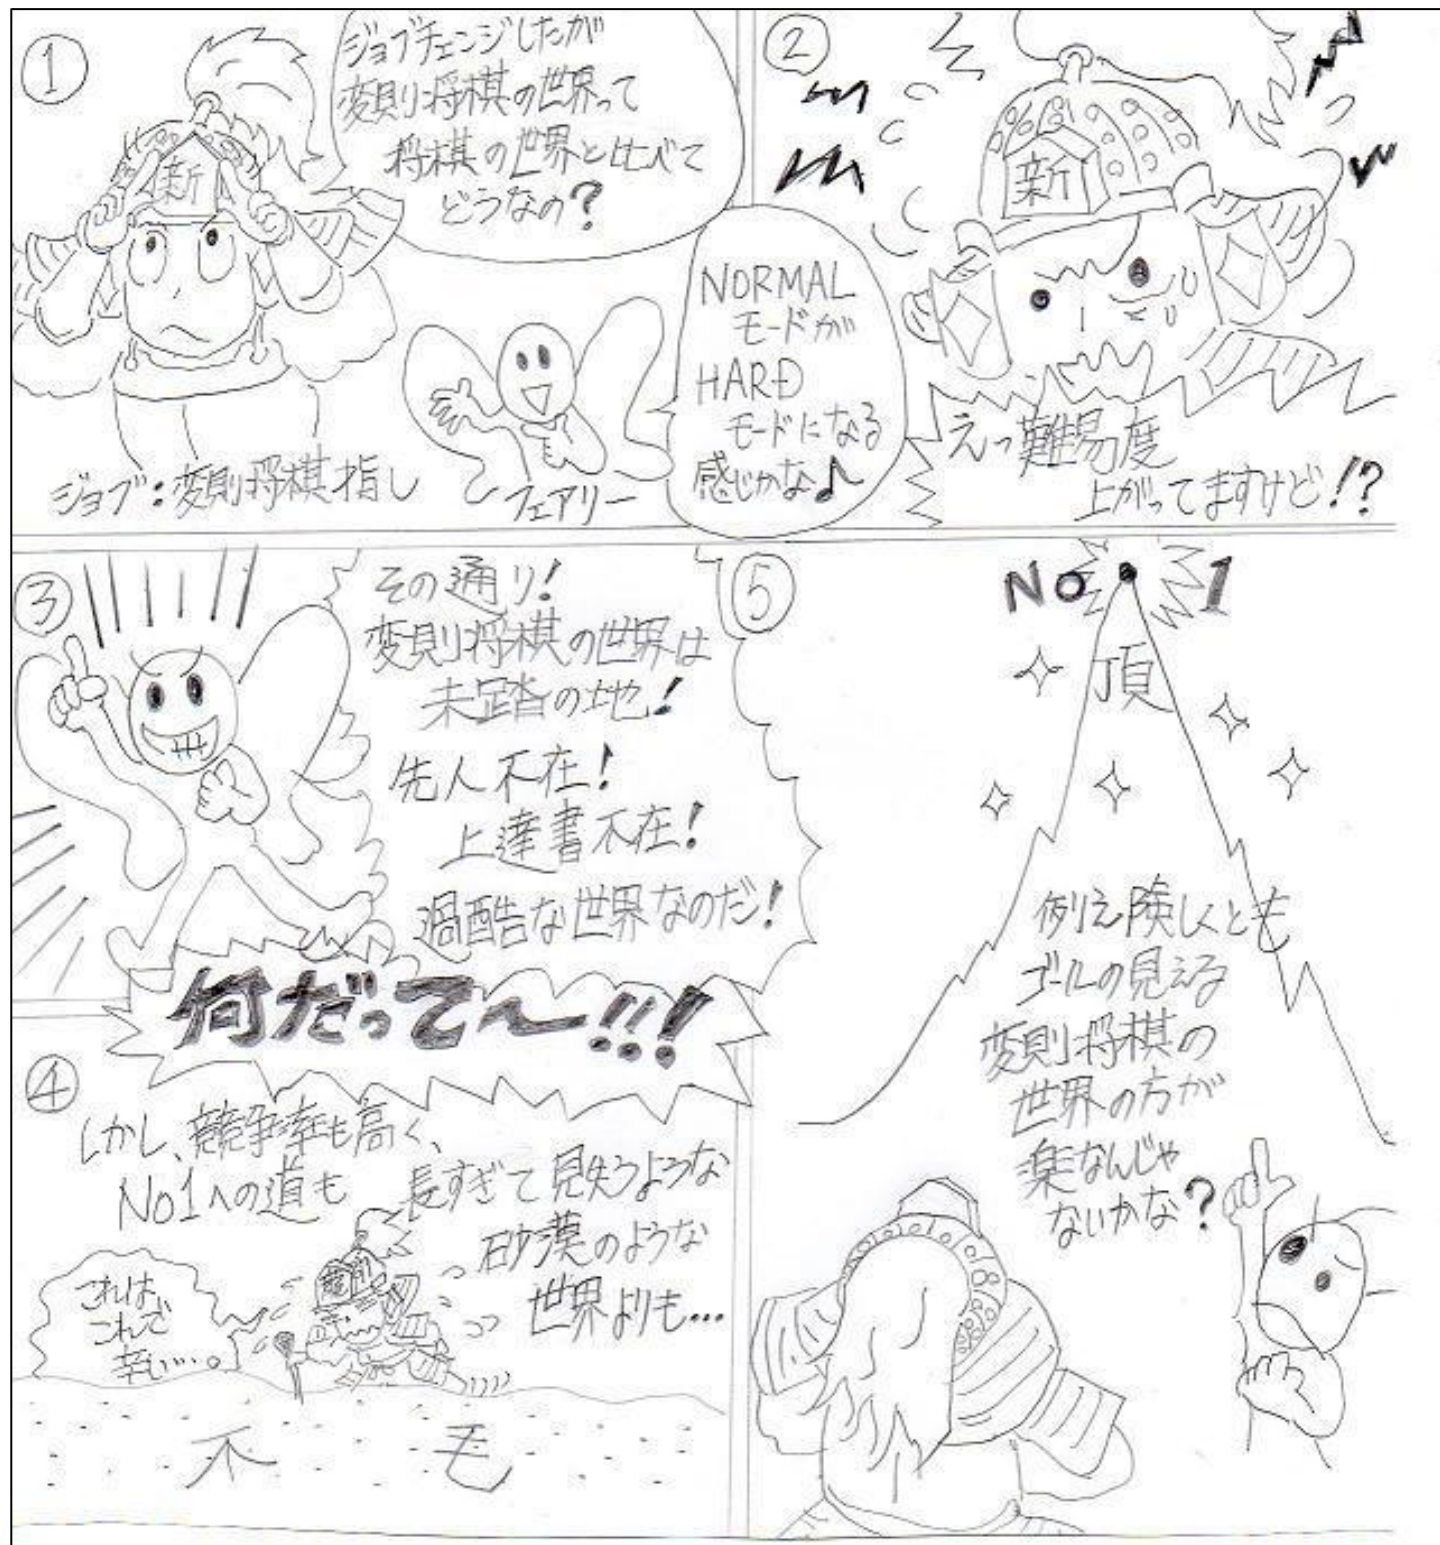 ①
ジョブチェンジしたが
変則将棋の世界って
将棋の世界と比べて
どうなの?
新
ジョブ:変則将棋指し
フェアリー
NORMAL
モードが
HARD
モードになる
感じかな♪
②
新
えっ難易度
上がってますけど!?
③
その通り!
変則将棋の世界は
未踏の地!
先人不在!
上達書不在!
過酷な世界なのだ!
何だって~!!!
④
しかし、競争率も高く、
No1への道も
長すぎて見失うような
砂漠のような
世界よりも…
これは
これで
辛い…。
不毛
⑤
No.1
頂
例え険しくとも
ゴールの見える
変則将棋の
世界の方が
楽なんじゃ
ないかな?